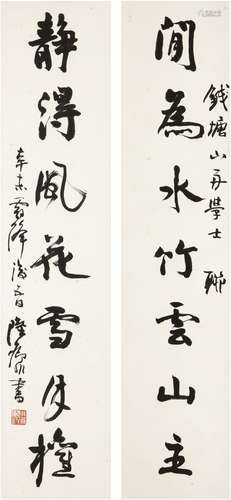 錢塘山舟學士聯
閒為水竹雲山主
靜得風花雪月權
辛未霜降後 日 陸康書